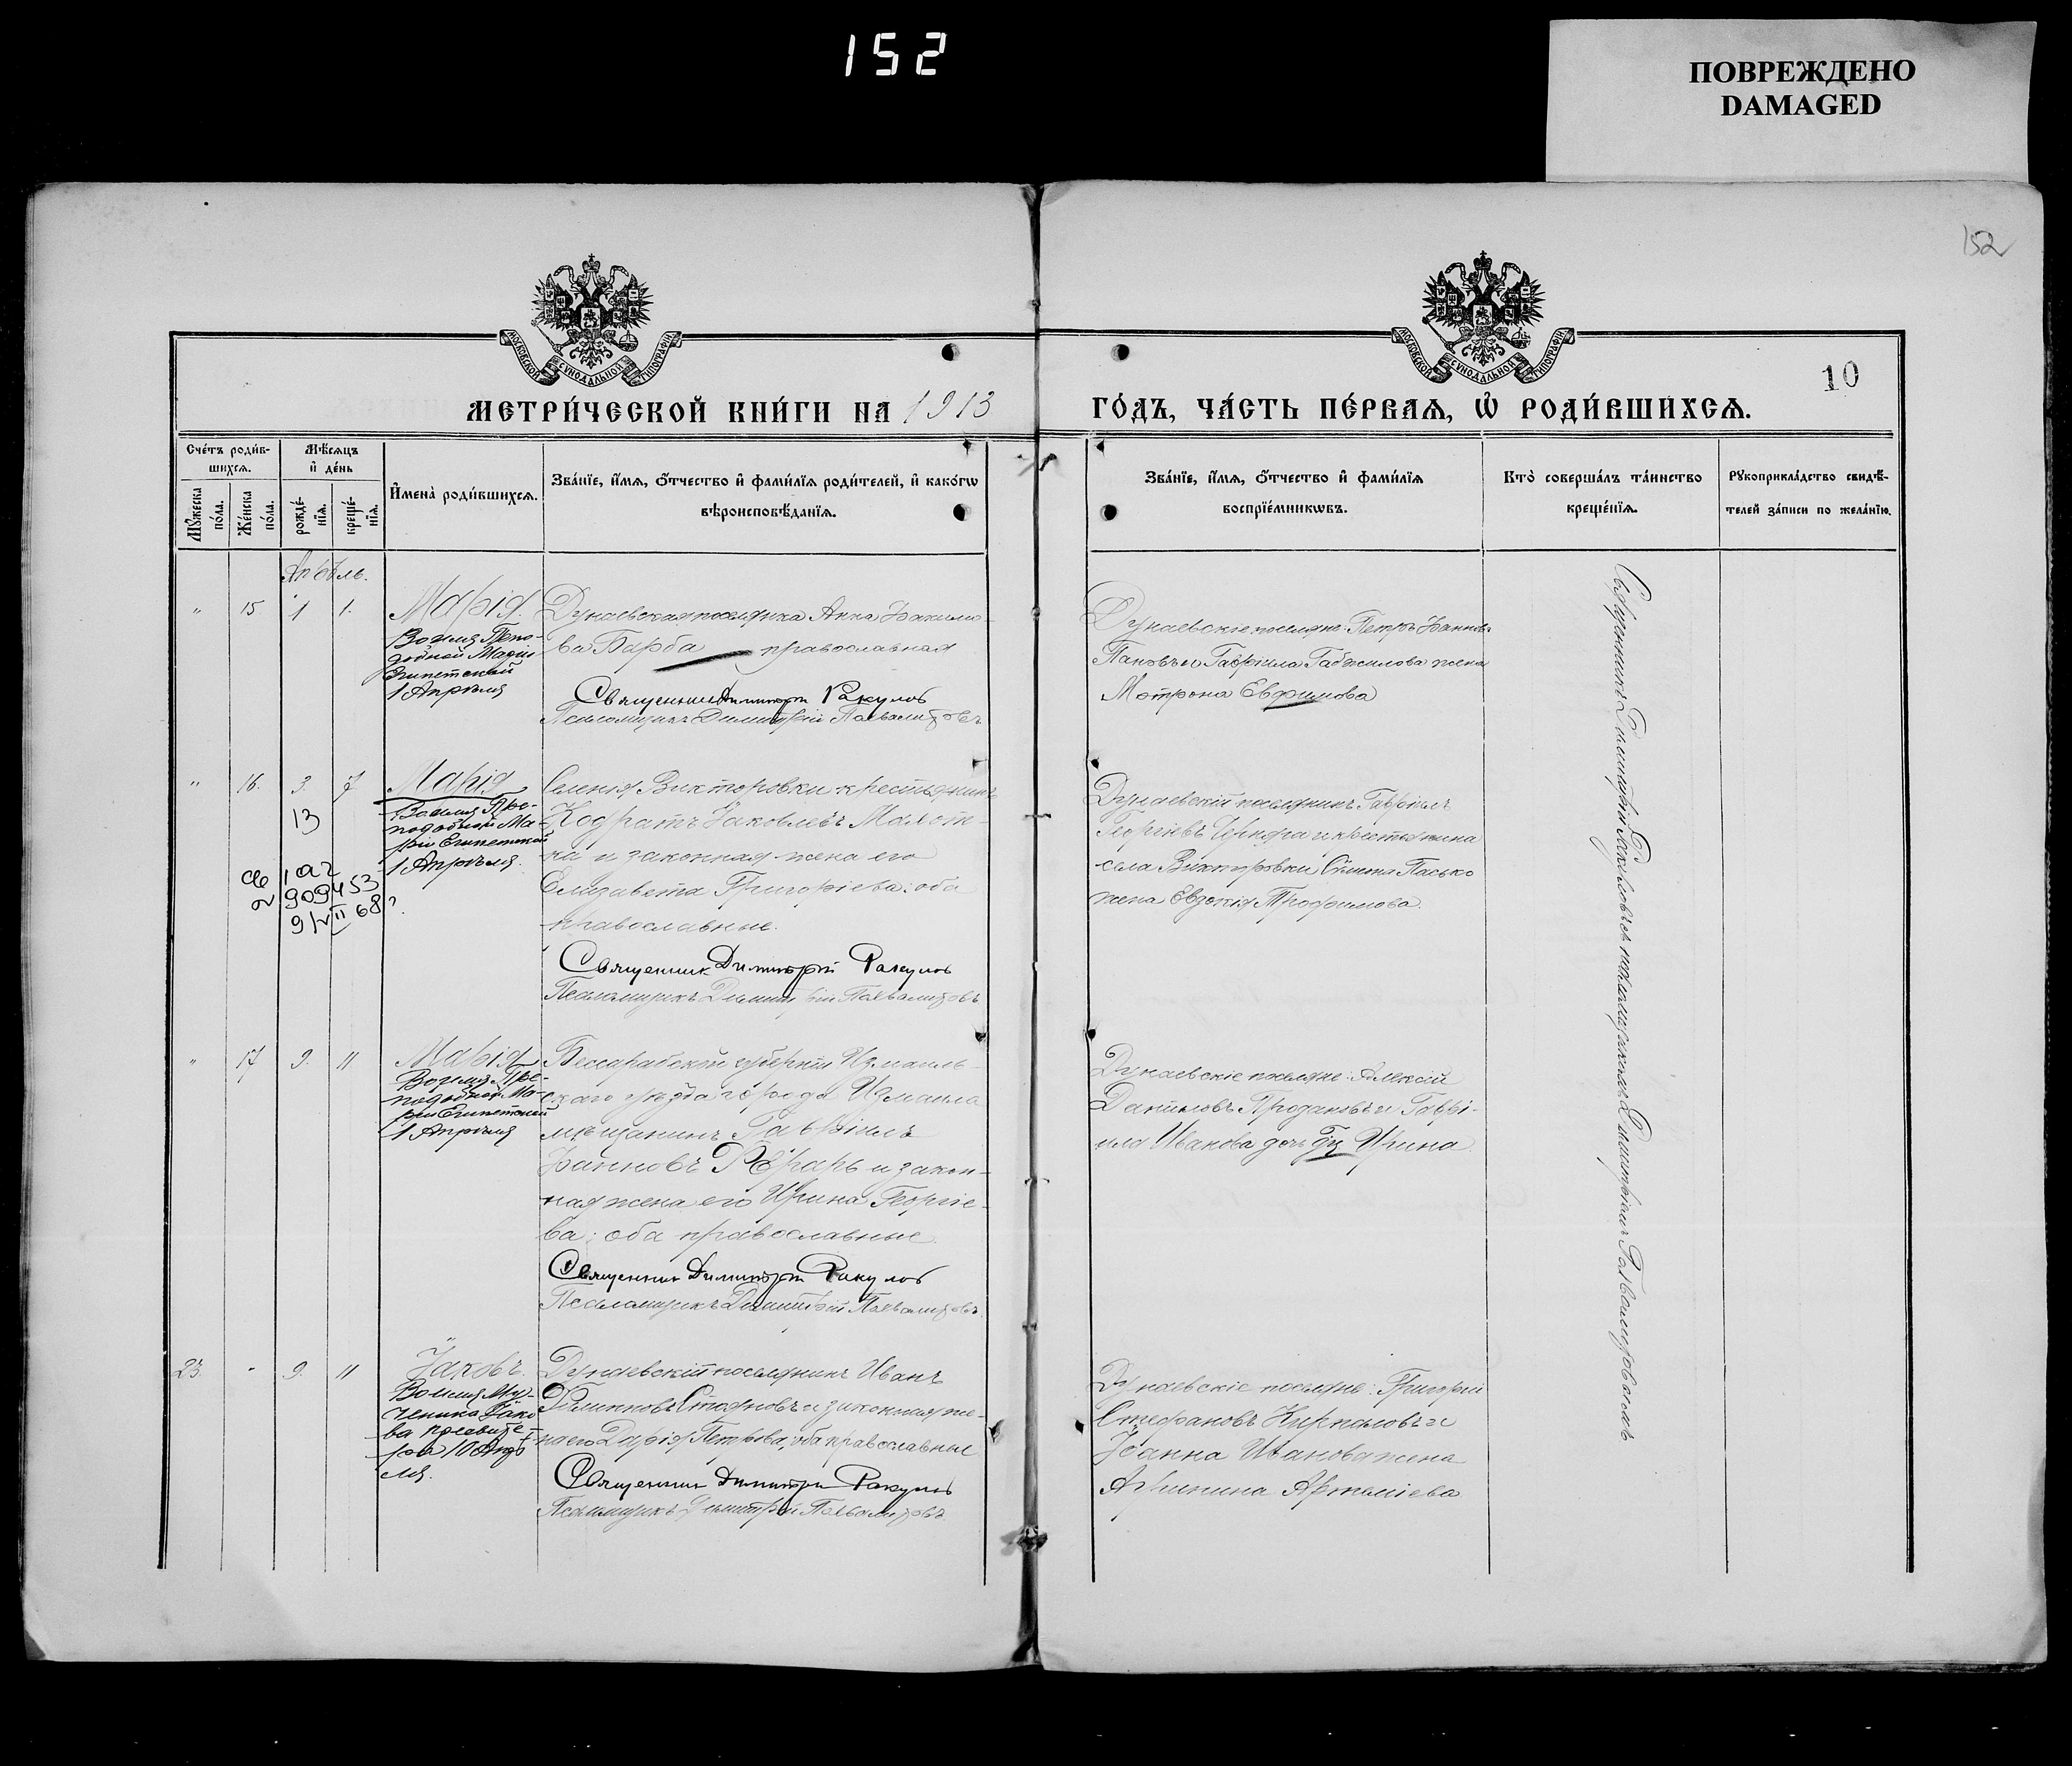 152
ПОВРЕЖДЕНО
DAMAGED
152
МОСКОВСКОЙ СѴНОДАЛЬНОЙ ТИПОГРАФІИ
МОСКОВСКОЙ СѴНОДАЛЬНОЙ ТИПОГРАФІИ
10
МЕТРИ́ЧЕСКОЙ КНИ́ГИ НА 1913
ГО́ДЪ, ЧА́СТЬ ПЕ́РВАѦ, Ѡ҆ РОДИ́ВШИХСѦ.
Сче́тъ роди́в-
шихсѧ.
Мѣ́сѧцъ
и҆ де́нь
Мꙋ́жеска
по́ла.
Же́нска
по́ла.
рожде́-
нїѧ.
креще́-
нїѧ.
И҆мена̀ роди́вшихсѧ.
Зва́нїе, и҆́мѧ, ѻ҆́тчество и҆ фами́лїѧ роди́телей, и҆ како́гѡ
вѣроисповѣ́данїѧ.
Зва́нїе, и҆́мѧ, ѻ҆́тчество и҆ фами́лїѧ
воспрїе́мникѡвъ.
Кто̀ соверша́лъ та́инство
креще́нїѧ.
Рꙋкоприкла́дство свидѣ́-
телей за́писи по жела́нїю.
Апрѣль.
" 15 1 1.
Марія.
Во имя Препо-
добной Маріи
Египетской
1 Апрѣля
Дунаевская поселянка Анна Іоакимо-
ва Барба православная
Священник Димитрій Ракулов
Псаломщикъ Димитрій
Дунаевскіе поселяне: Петръ Іоаннов
Пановъ и Гавріила жена
Мотрона Евфимова
" 16. 3. 7
13
Марія
Во имя Пре-
подобной Ма-
ріи Египетской
1 Апрѣля.
909453
68
Селенія Викторовки крестьянинъ
Кодратъ Іаковлевъ
и законная жена его
Елизавета Григоріева: оба
православные.
Священник Димитрій Ракулов
Псаломщикъ Димитрій
Дунаевскій поселянинъ Гавріилъ
Георгіевъ и крестьянина
села Викторовки Пасько
жена Евдокія Трофимова.
" 17 9. 11
Марія
Во имя Пре-
подобной Ма-
ріи Египетской
1 Апрѣля
Бессарабской губерніи Измаиль-
скаго уѣзда города Измаила
мѣщанинъ Гавріилъ
Іоанновъ и закон-
ная жена его Ирина Георгіе-
ва: оба православные.
Священник Димитрій Ракулов
Псаломщикъ Димитрій
Дунаевскіе поселяне: Алексій
Даниловъ Продановъ и Гаврі-
ила Иванова дочь Ирина.
23. " 9. 11
Іаковъ.
Во имя Му-
ченика Іако-
ва пресвите-
ра 10 Апрѣ-
ля.
Дунаевскій поселянинъ Иванъ
и законная же-
на его Дарія Петрова; оба православные
Священник Димитрій Ракулов
Псаломщикъ Димитрій
Дунаевскіе поселяне: Григорій
Стефановъ и
Іоанна Иванова жена
Агрипина Артеміева.
Священникъ Димитрій Ракуловъ съ псаломщикомъ Димитріемъ